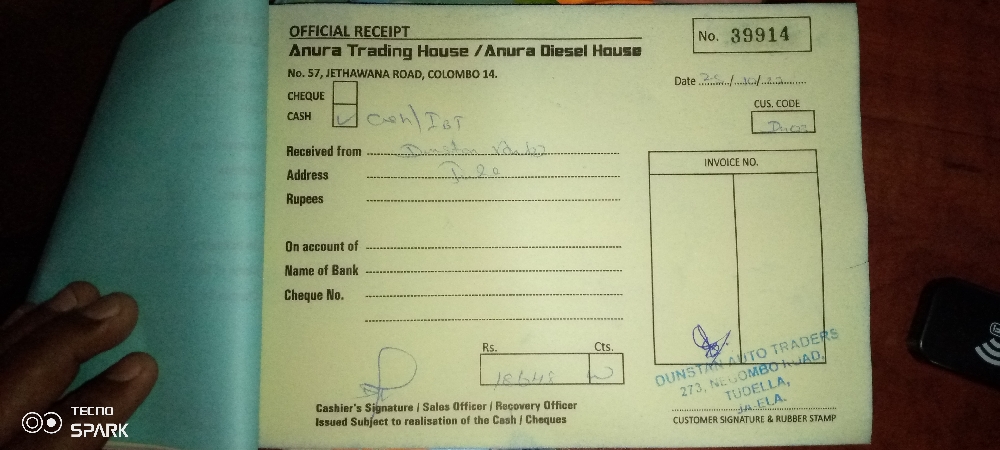 OFFICIAL RECEIPT
Anura Trading House / Anura Diesel House
No. 57, JETHAWANA ROAD, COLOMBO 14.
No. 39914
Date
CHEQUE
CASH Cash/
CUS. CODE
Received from
Address
Rupees
INVOICE NO.
On account of
Name of Bank
Cheque No.
Rs. Cts.
Cashier's Signature / Sales Officer / Recovery Officer
Issued Subject to realisation of the Cash / Cheques
DUNSTAN AUTO TRADERS
273, NEGOMBO ROAD,
TUDELLA,
JA ELA.
CUSTOMER SIGNATURE & RUBBER STAMP
TECNO
SPARK